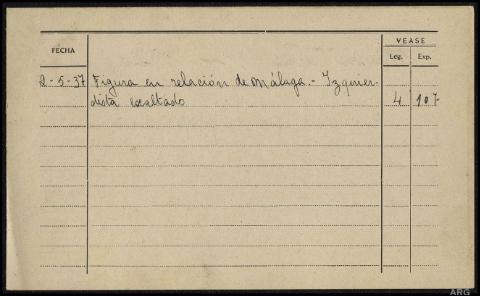 VEASE
FECHA
Leg. Exp.
2-5-37 Figura en relación de Málaga.- Izquier-
dista exaltado 4 107-
ARG